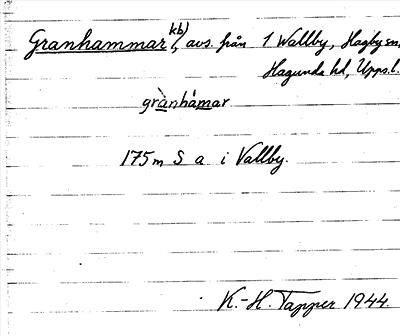 Granhammar kb), avs. från 1 Wallby, Hagby sn,
Hagunda hd, Upps.l.
grànhámar
175 m S a i Vallby.
K.-H. Tapper 1944.